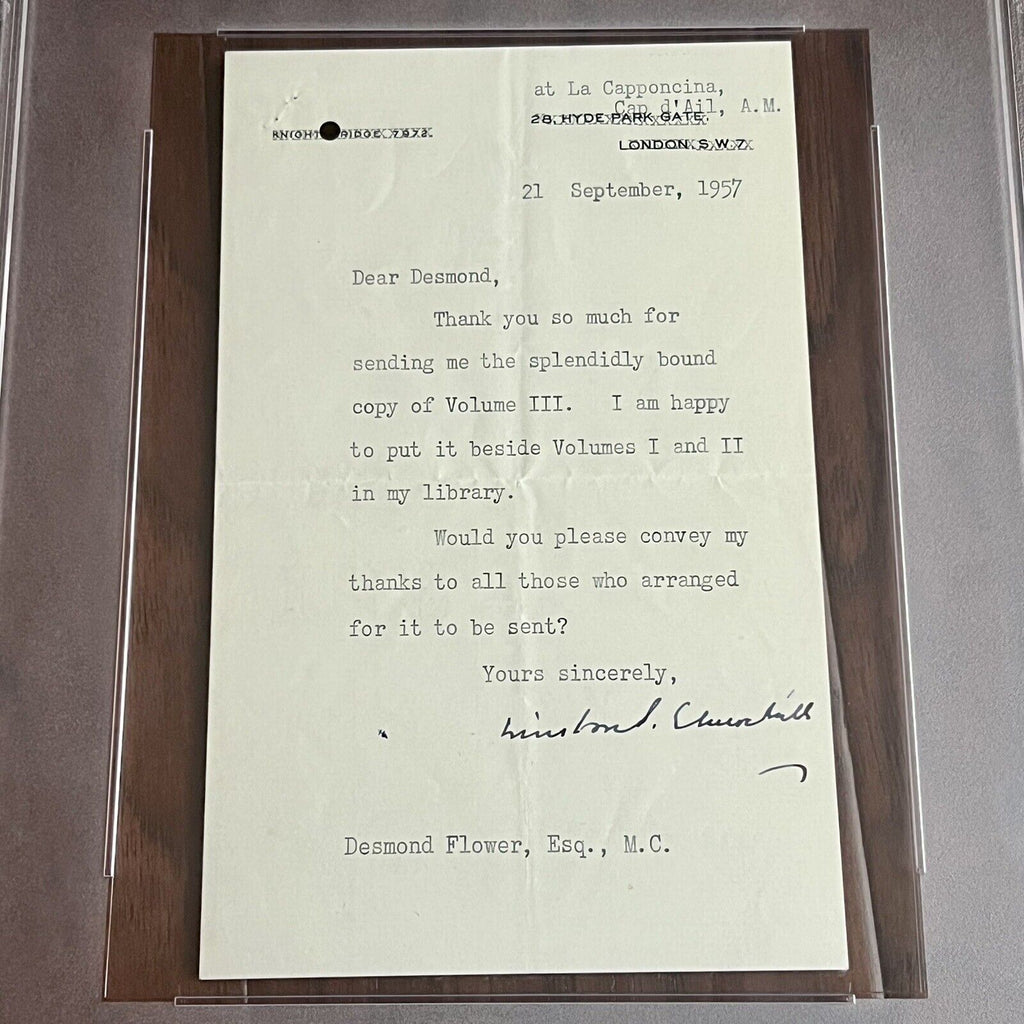 at La Capponcina,
Cap d'Ail, A.M.
28, HYDE PARK GATE,
LONDON, S.W.7.
21 September, 1957
Dear Desmond,
Thank you so much for
sending me the splendidly bound
copy of Volume III. I am happy
to put it beside Volumes I and II
in my library.
Would you please convey my
thanks to all those who arranged
for it to be sent?
Yours sincerely,
Winston S. Churchill
Desmond Flower, Esq., M.C.